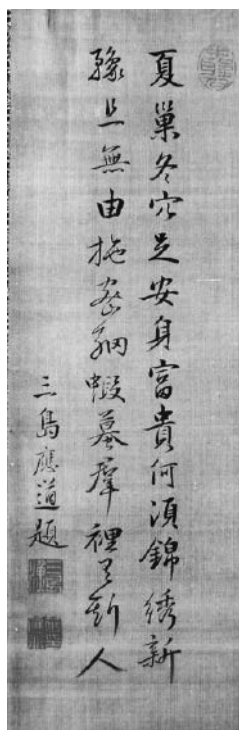 夏巢冬穴足安身富貴何須錦綉新
豫且無由施密網蝦蟇羣裡斯人
三島應道題